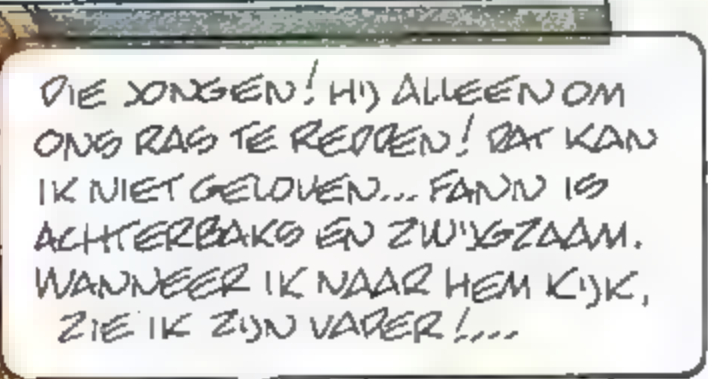 DIE JONGEN! HIJ ALLEEN OM
ONS RAS TE REDDEN! DAT KAN
IK NIET GELOVEN... FANN IS
ACHTERBAKS EN ZWIJGZAAM.
WANNEER IK NAAR HEM KIJK,
ZIE IK ZIJN VADER!...